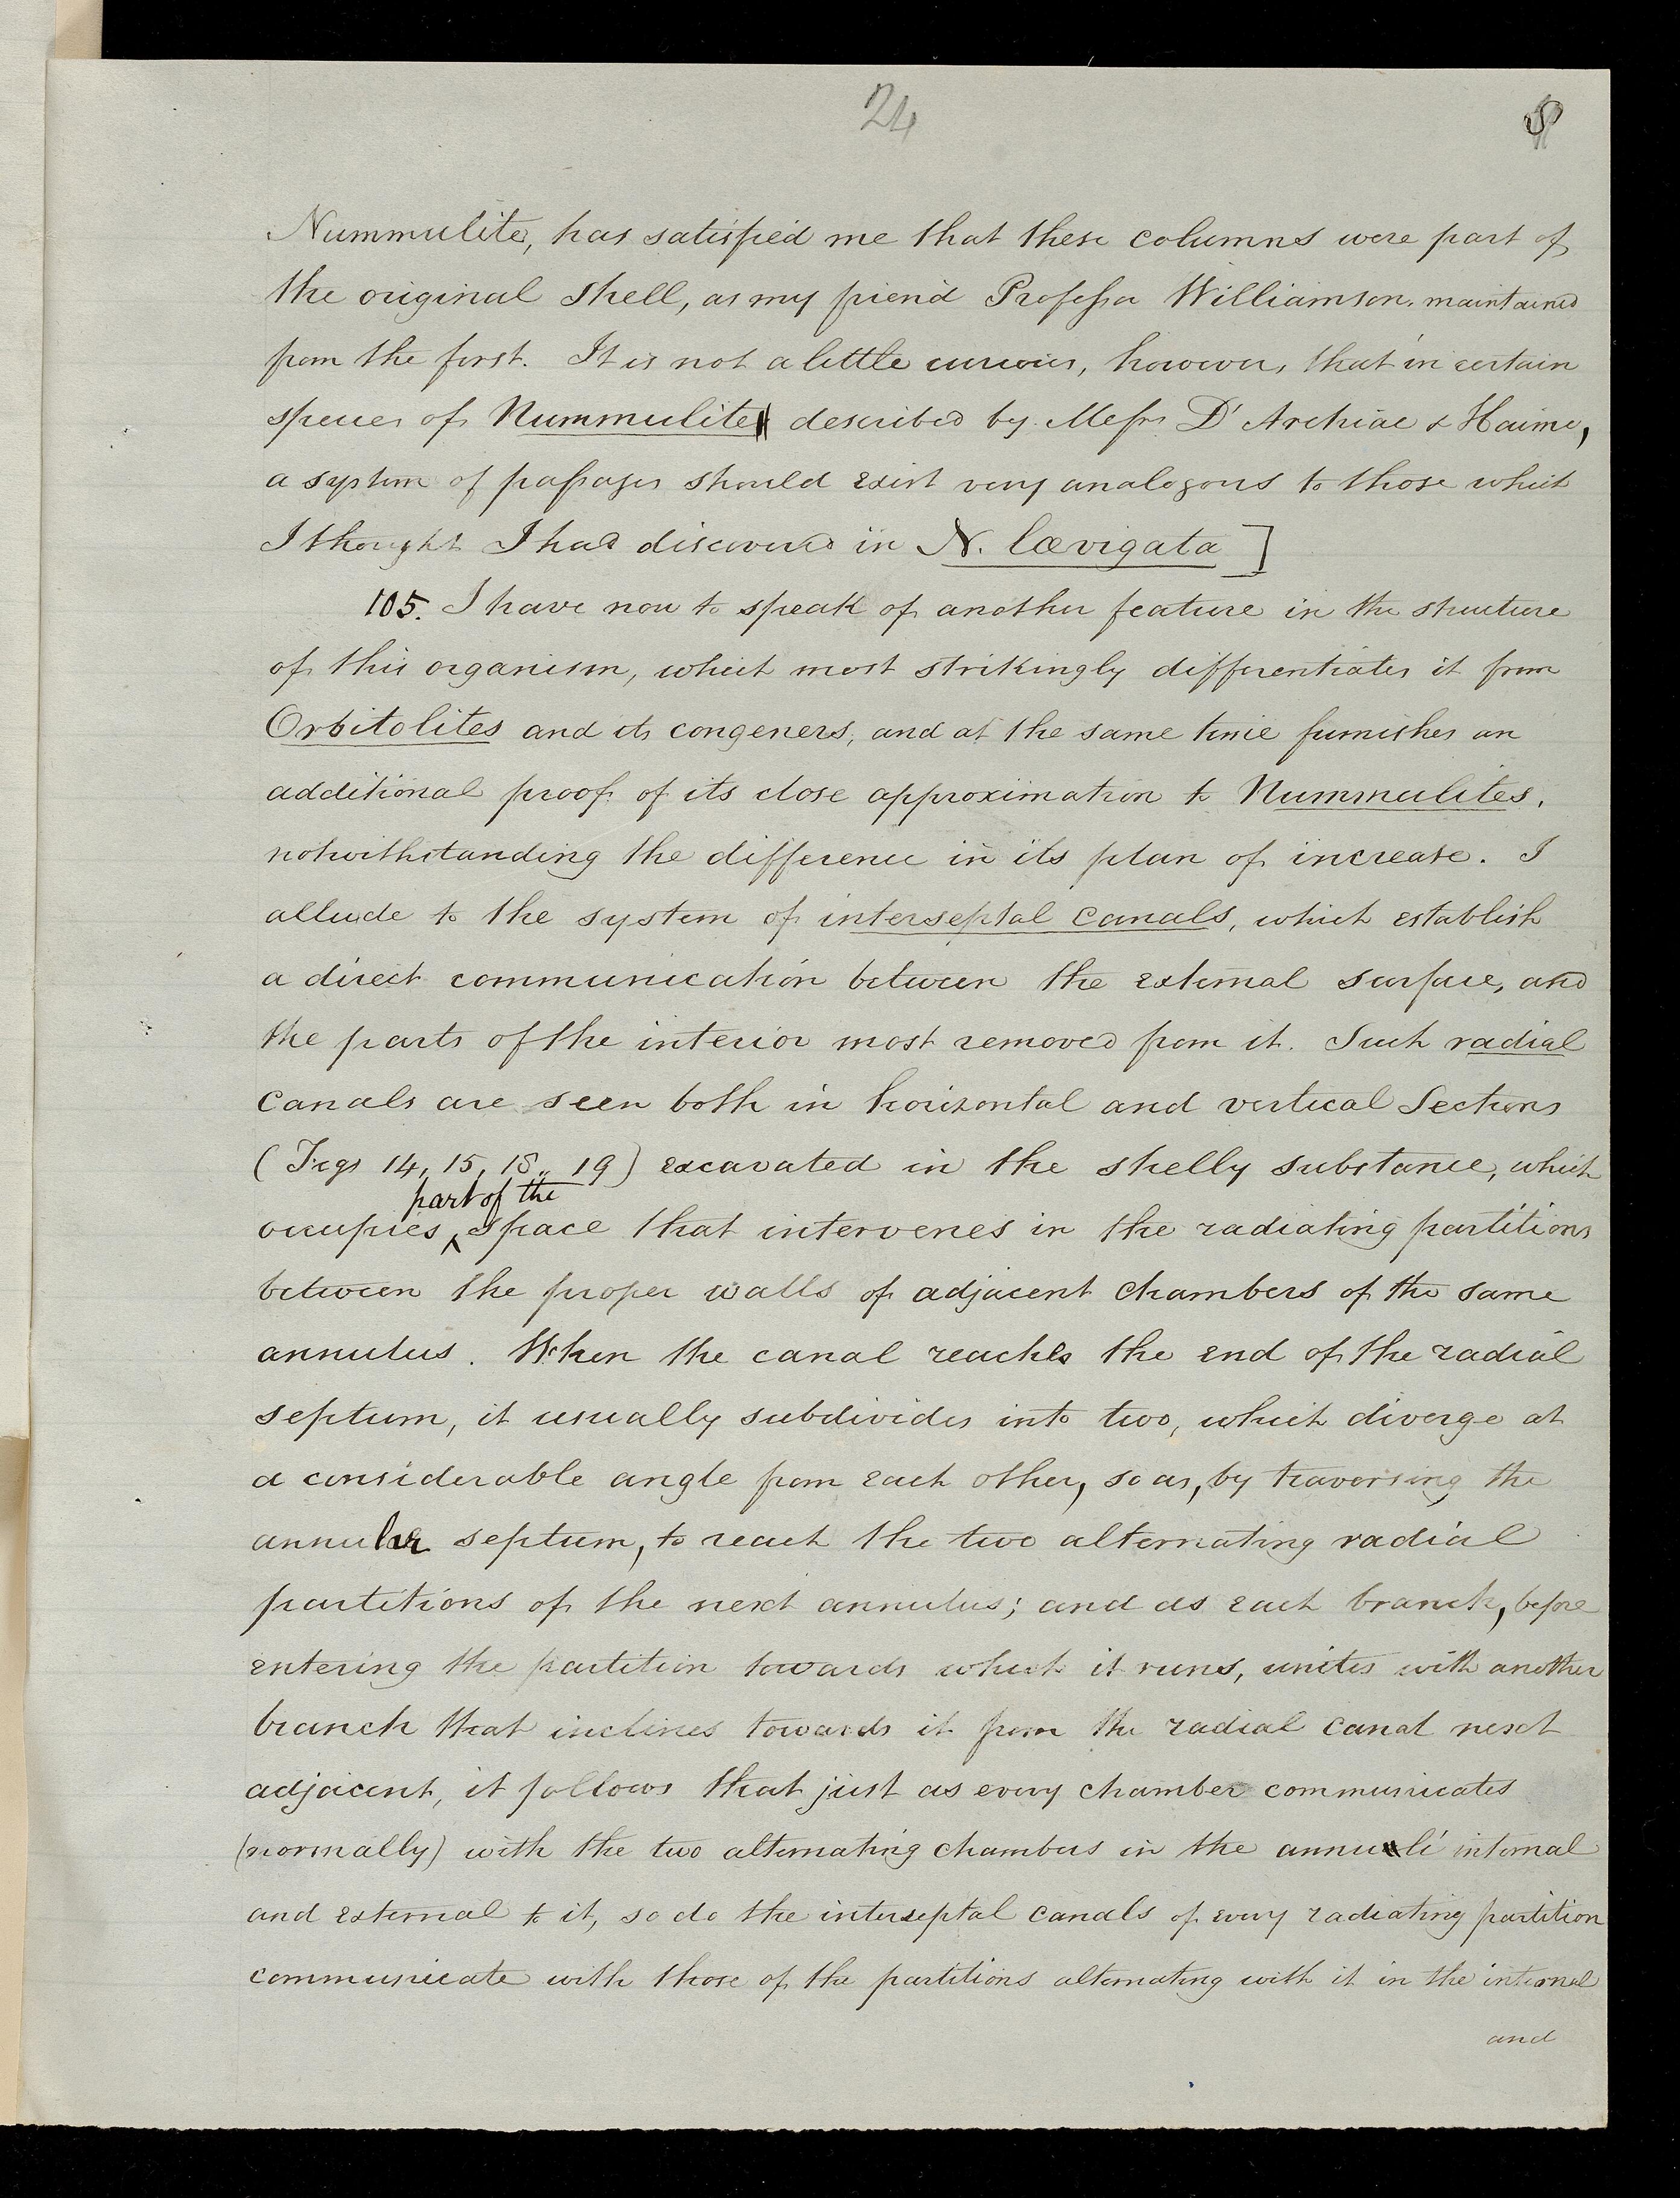 24
8
Nummulite, has satisfied me that these columns were part of
the original shell, as my friend Professor Williamson. maintained
from the first. It is not a little curious, however, that in certain
species of Nummulite described by Messrs D'Archiac & Haime,
a system of passages should exist very analogous to those which
I thought I had discovered in N. lævigata ]
105. I have now to speak of another feature in the structure
of this organism, which most strikingly differentiates it from
Orbitolites and its congeners, and at the same time furnishes an
additional proof of its close approximation to Nummulites,
notwithstanding the difference in its plan of increase. I
allude to the system of interseptal canals, which establish
a direct communication between the external surface, and
the parts of the interior most removed from it. Such radial
canals are seen both in horizontal and vertical Sections
(Figs 14, 15, 18,, 19) excavated in the shelly substance, which
part of the
occupies ‸ space that intervenes in the radiating partitions
between the proper walls of adjacent chambers of the same
annulus. When the canal reaches the end of the radial
septum, it usually subdivides into two, which diverge at
a considerable angle from each other, so as, by traversing the
annular septum, to reach the two alternating radial
partitions of the next annulus; and as each branch, before
entering the partition towards which it runs, unites with another
branch that inclines towards it from the radial canal next
adjacent, it follows that just as every chamber communicates
(normally) with the two alternating chambers in the annuli internal
and external to it, so do the interseptal canals of every radiating partition
communicate with those of the partitions alternating with it in the internal
and